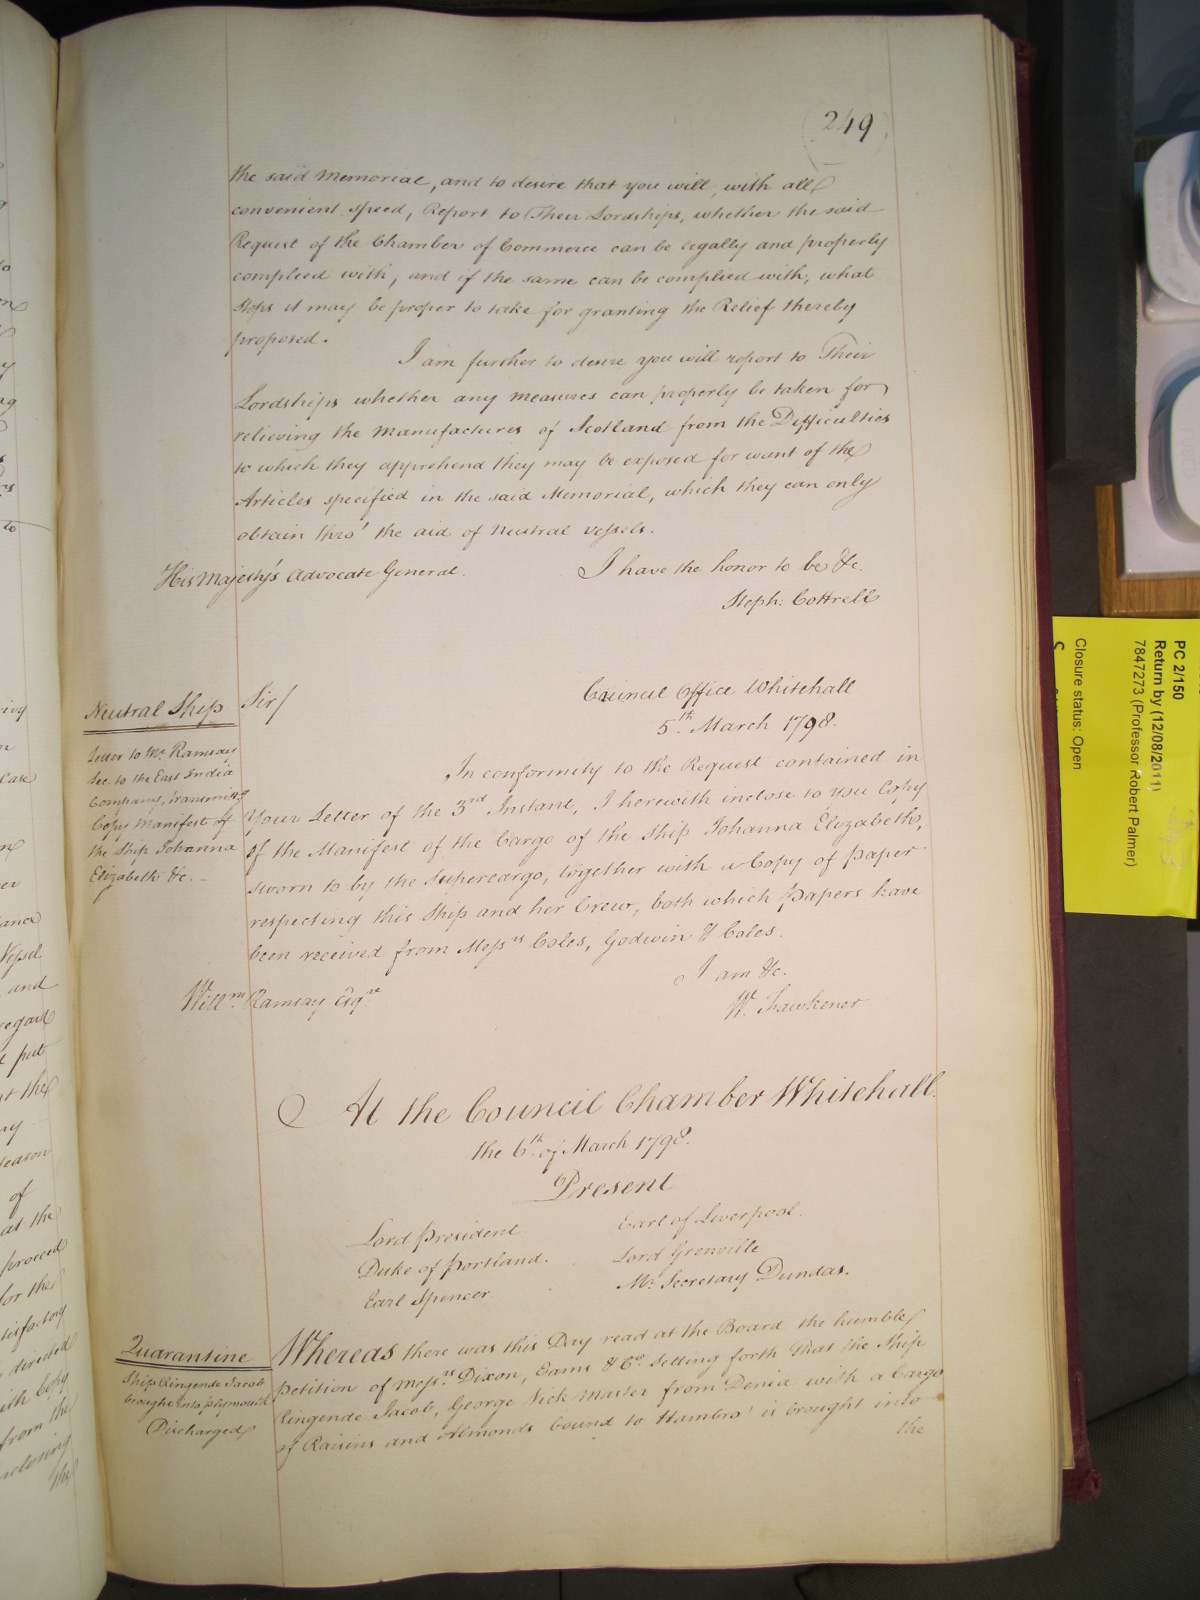 249
the said Memorial, and to desire that you will, with all
convenient speed, Report to Their Lordships, whether the said
Request of the Chamber of Commerce can be legally and properly
complied with, and if the same can be complied with, what
Steps it may be proper to take for granting the Relief thereby
proposed.
I am further to desire you will report to Their
Lordships whether any measures can properly be taken for
relieving the Manufactures of Scotland from the Difficulties
to which they apprehend they may be exposed for want of the
Articles specified in the said Memorial, which they can only
obtain thro' the aid of Neutral Vessels.
I have the honor to be &c.
His Majesty's Advocate General.
Steph: Cottrell
Council Office Whitehall
5th March 1798.
Neutral Ship
Letter to Mr Ramsay
Sec. to the East India
Company, transmitt.g
Copy Manifest of
the Ship Johanna
Elizabeth &c.
Sir/
In conformity to the Request contained in
Your Letter of the 3rd Instant, I herewith inclose to you Copy
of the Manifest of the Cargo of the Ship Johanna Elizabeth,
sworn to by the Supercargo, together with a Copy of Paper
respecting this Ship and her Crew, both which Papers have
been received from Messrs Coles, Godwin & Coles.
I am &c.
Willm Ramsay Esqre
W. Fawkener
At the Council Chamber Whitehall.
the 6th of March 1798.
Present
Lord President
Duke of Portland.
Earl Spencer
Earl of Liverpool.
Lord Grenville
Mr Secretary Dundas.
Quarantine
Ship Ringende Jacob
brought into Plymouth
Discharged
Whereas there was this Day read at the Board the humble
Petition of Messrs Dixon, Eams & Co. Setting forth That the Ship
Ringende Jacob, George Nick Master from Denia with a Cargo
of Raisins and Almonds bound to Hambro' is brought into
the
PC 2/150
Return by (12/08/2011)
7847273 (Professor Robert Palmer)
Closure status: Open